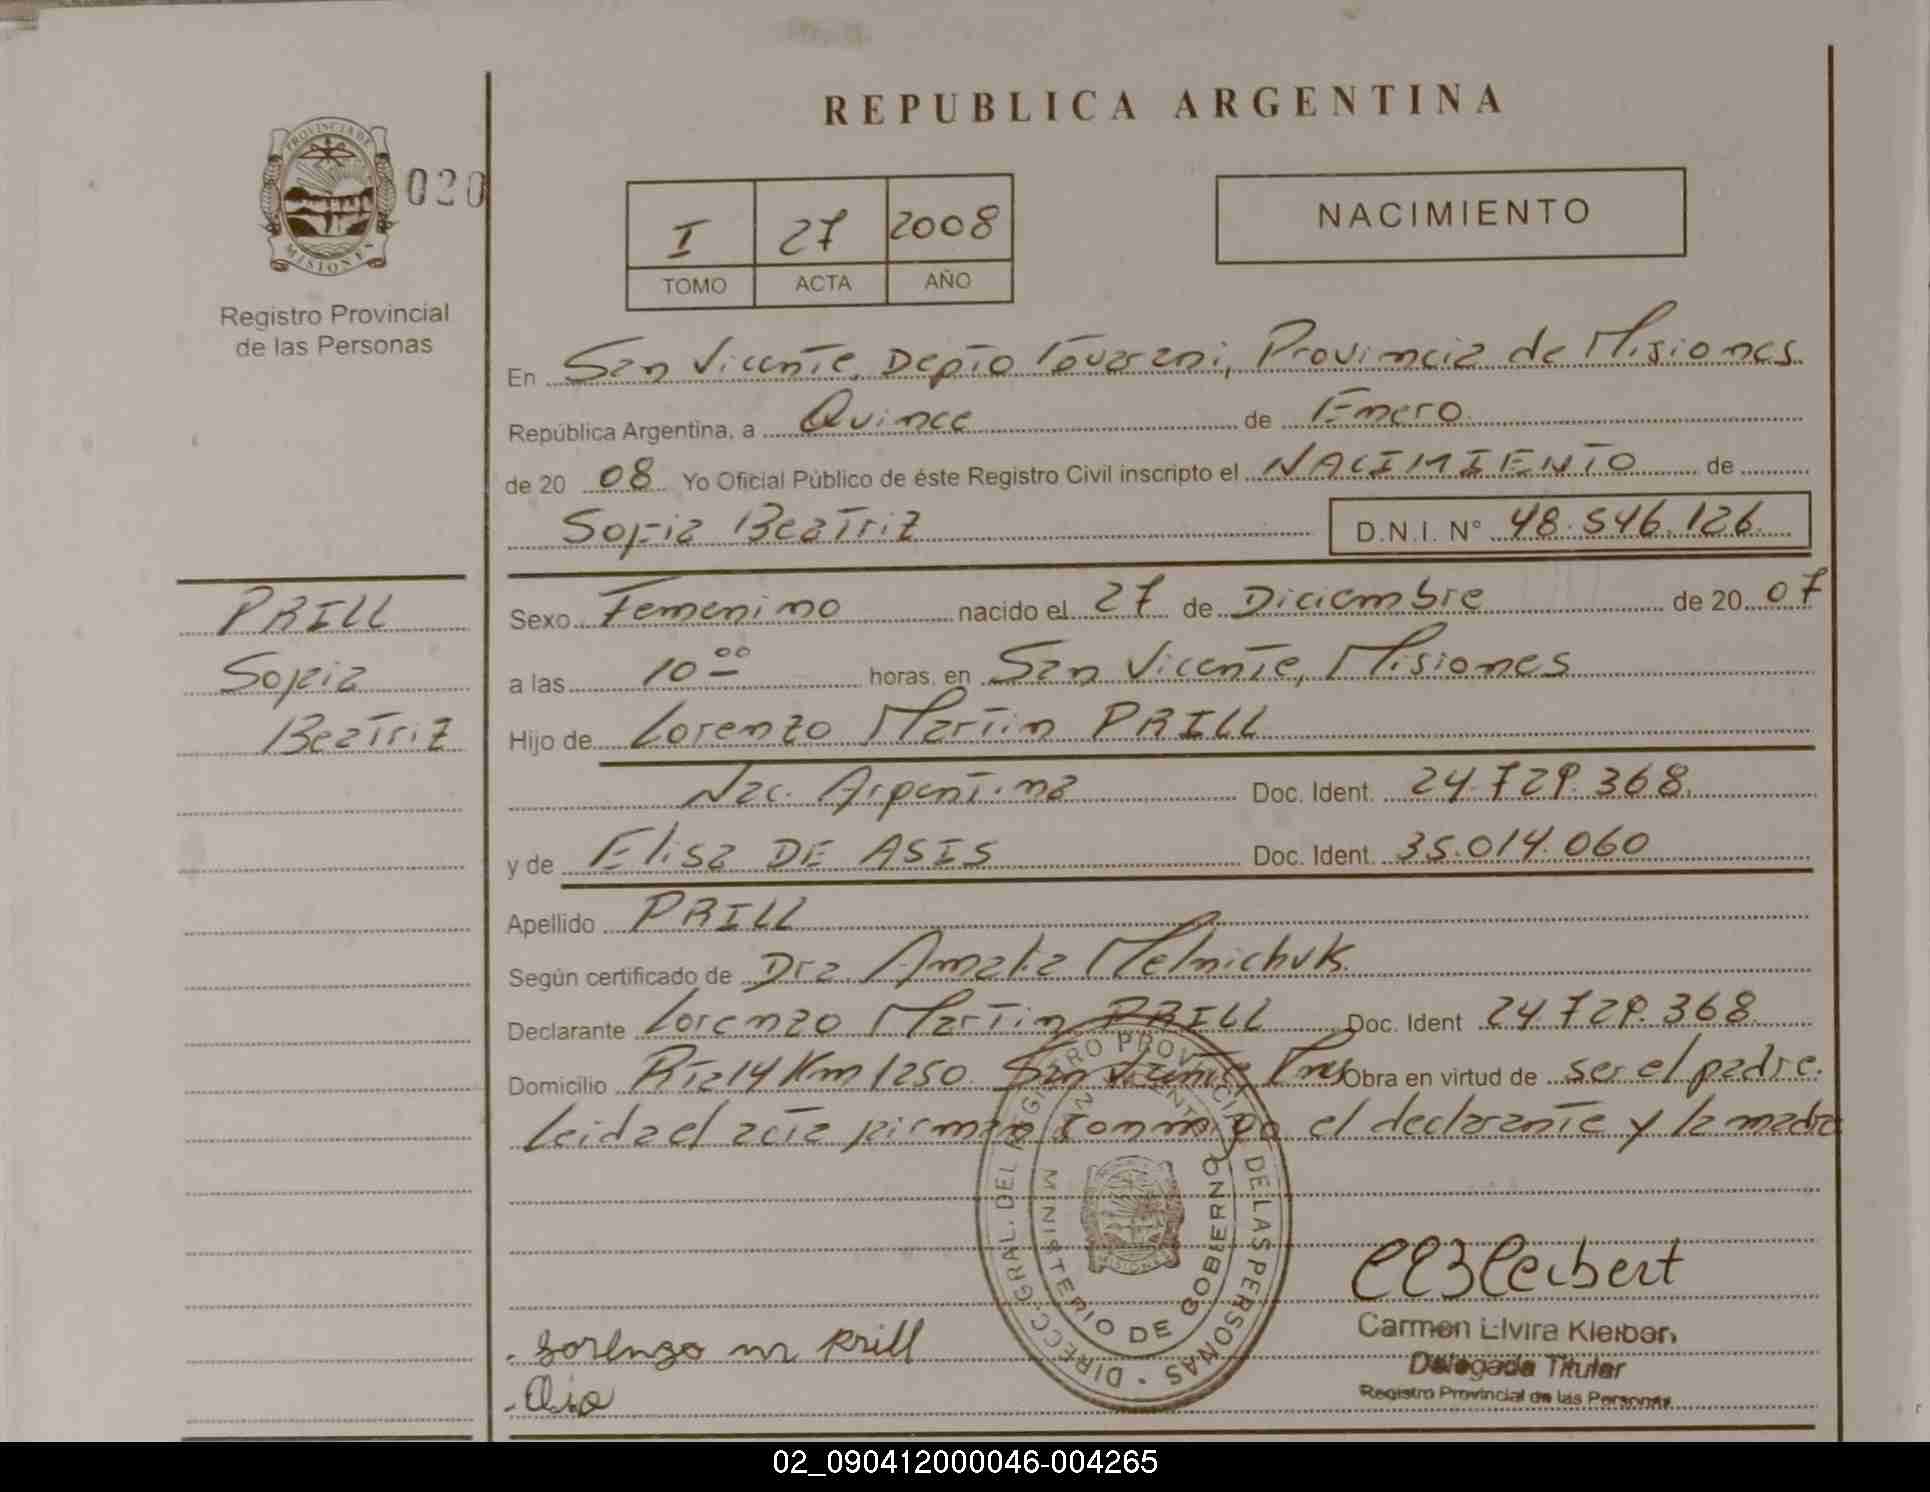 REPUBLICA ARGENTINA
PROVINCIA DE
MISIONES
020
Registro Provincial
de las Personas
I 27 2008
TOMO ACTA AÑO
NACIMIENTO
En San Vicente, Depto Guarani, Provincia de Misiones
República Argentina, a Quince de Enero
de 20 08 Yo Oficial Público de éste Registro Civil inscripto el NACIMIENTO de
Sofia Beatriz D.N.I. N° 48.546.126
PRILL
Sofia
Beatriz
Sexo Femenino nacido el 27 de Diciembre de 20 07
a las 10 00 horas, en San Vicente, Misiones
Hijo de Lorenzo Martin PRILL
Nac. Argentina Doc. Ident. 24.729.368
y de Elisa DE ASIS Doc. Ident. 35.014.060
Apellido PRILL
Según certificado de Dra. Amalia Melnichuk
Declarante Lorenzo Martin PRILL Doc. Ident 24.729.368
Domicilio Rta 14 Km 1250 San Vicente Mnes Obra en virtud de ser el padre.
Leida el acta firman conmigo el declarante y la madre
DIRECC. GRAL. DEL REGISTRO PROVINCIAL DE LAS PERSONAS
MINISTERIO DE GOBIERNO
MISIONES
Lorenzo m Prill
Carmen Elvira Kleibert
Delegada Titular
Registro Provincial de las Personas
02_090412000046-004265